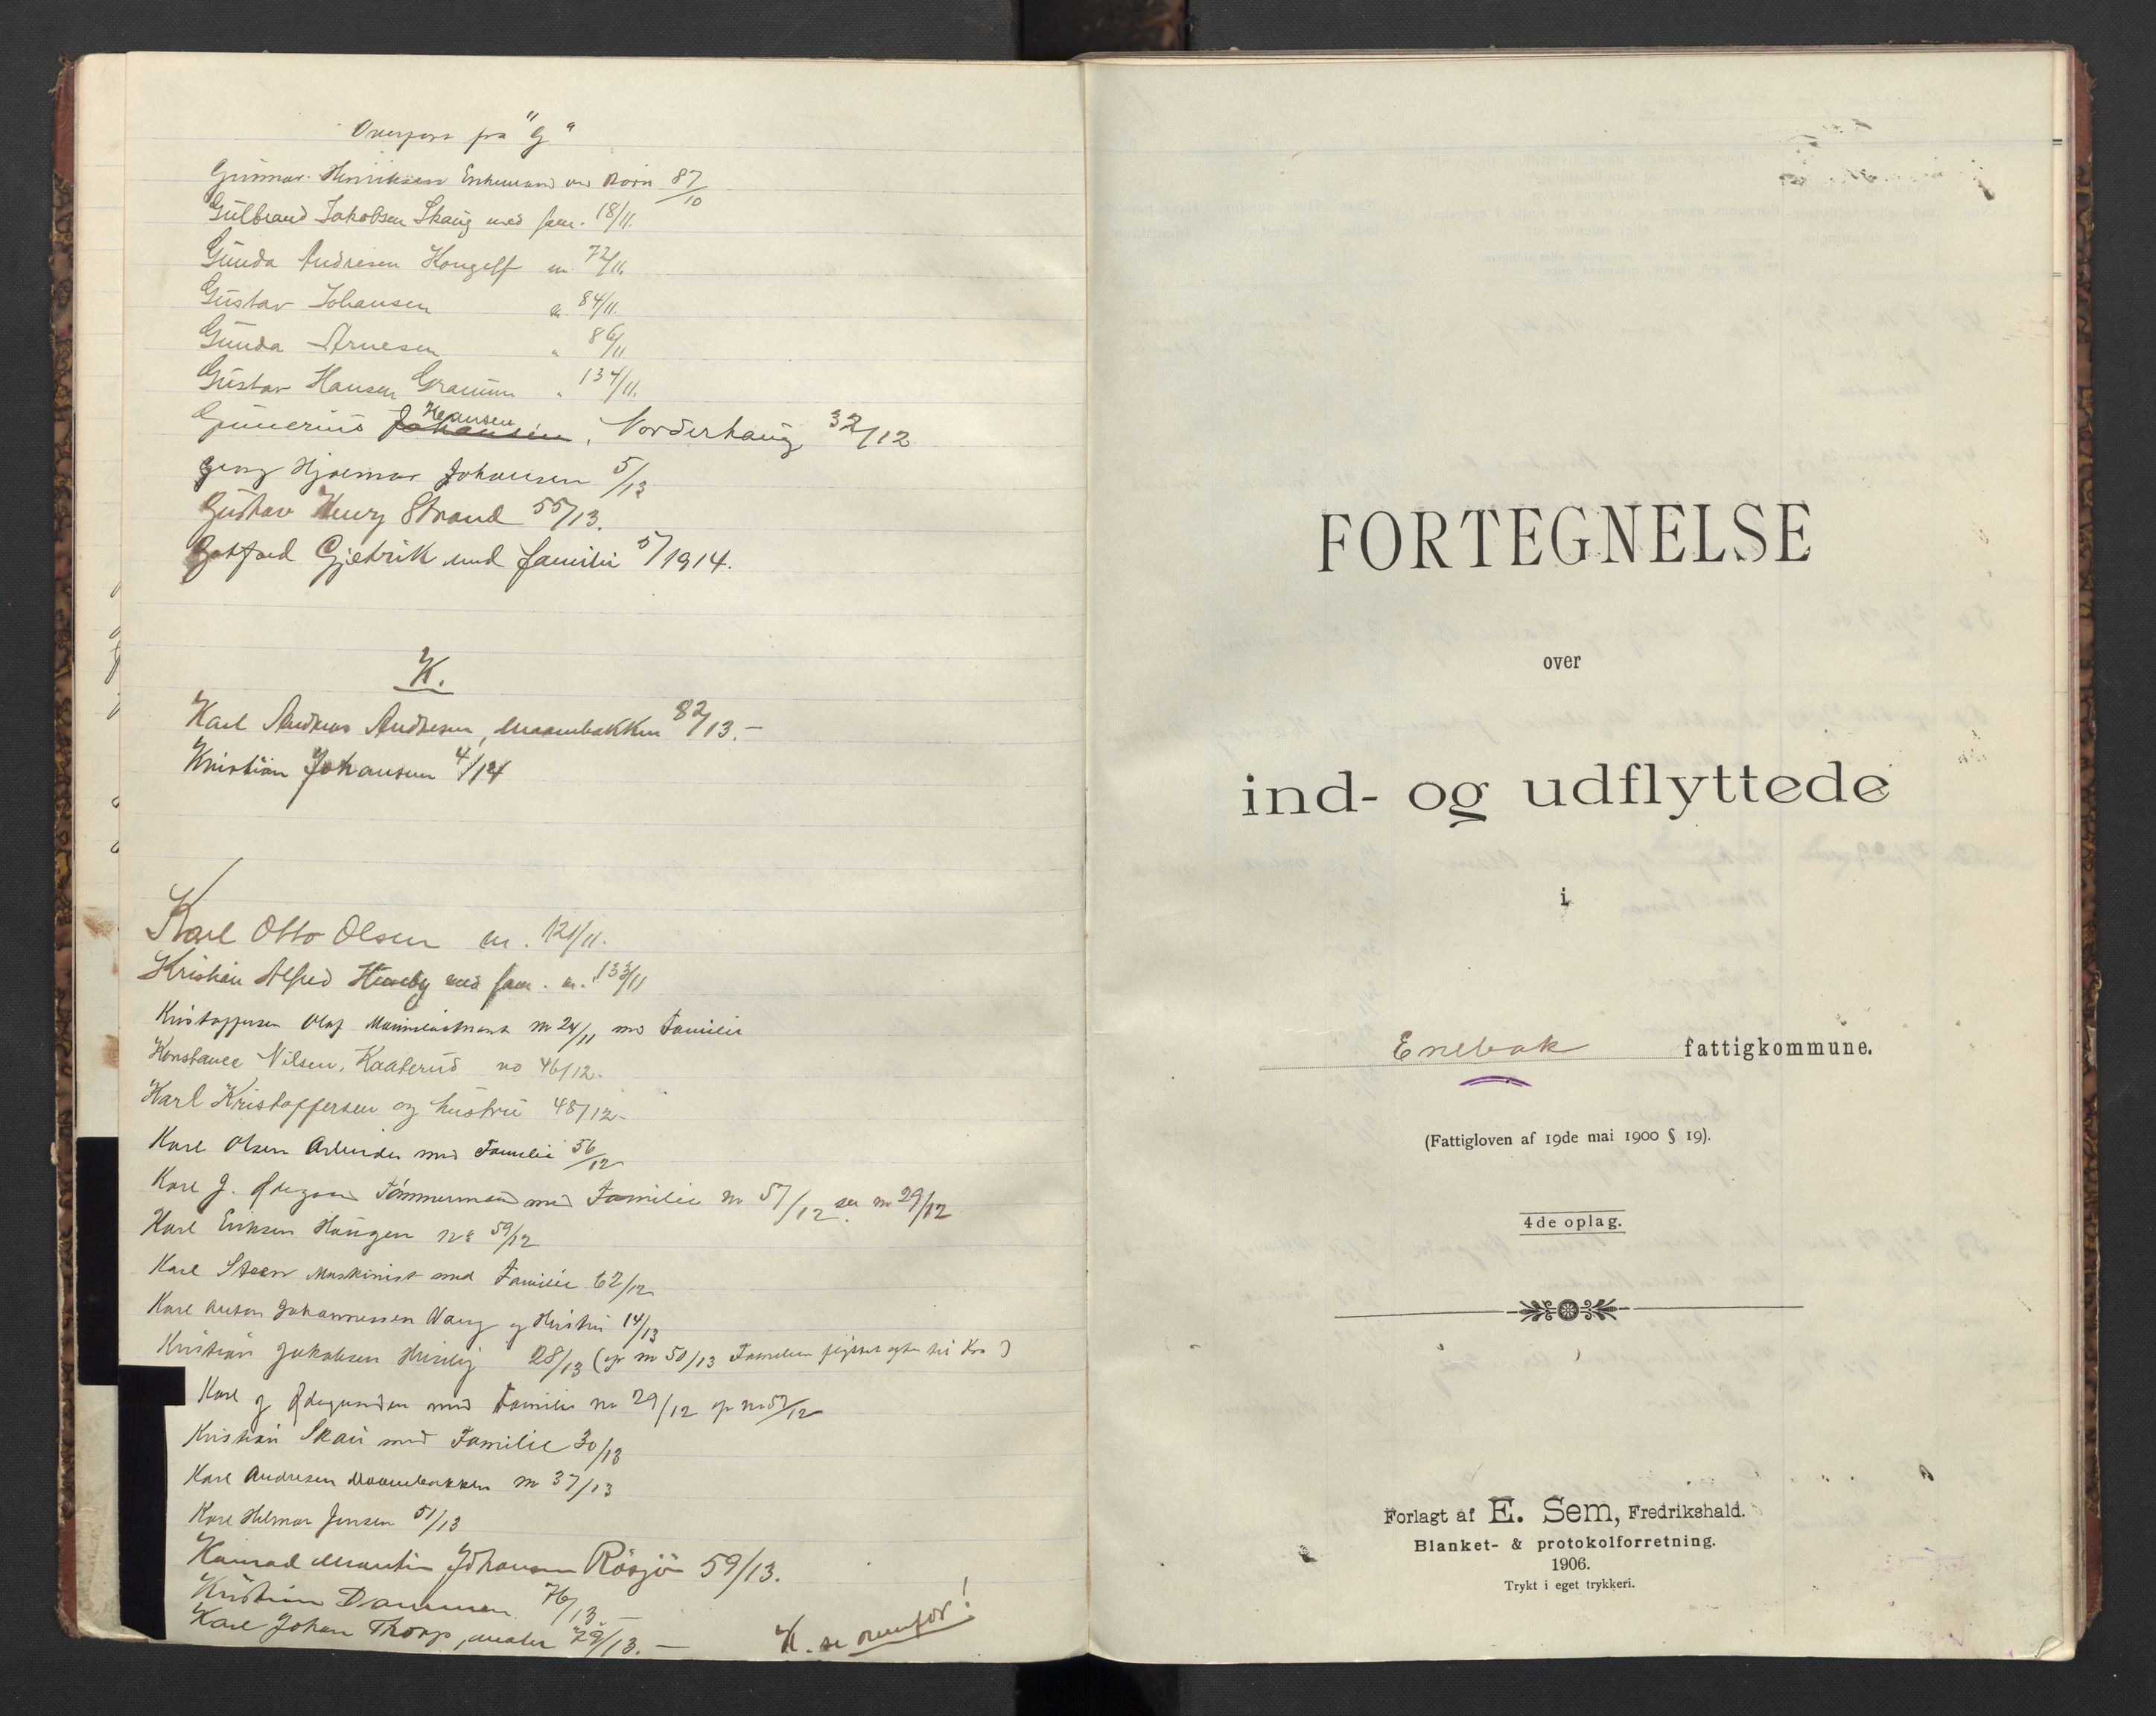 Overført fra "G"
Gunnar Henriksen Enkemand med Børn 87/10
Gulbrand Jakobsen Skaug med fam. 18/11.
Gunda Andresen Kongelf nr. 72/11.
Gustav Johansen nr. 84/11.
Gunda Arnesen " 86/11
Gustav Hansen Granum " 134/11.
Gunerius Johansen Hansen, Norderhaug 32/12
Georg Hjalmar Johansen 5/13
Gustav Henry Strand 55/13.
Gotfred Gjetvik med familie 5/1914.
K.
Karl Andreas Andresen, Moenbakken 82/13.-
Kristian Johansen 4/14
Karl Otto Olsen nr. 121/11.
Kristian Alfred Huseby med fam. nr. 133/11
Kristoffersen Olaf nr 24/11 med Familie
Konstance Nilsen, Kaaterud no 46/12.
Karl Kristoffersen og hustru 48/12-
Karl Olsen Arbeider med Familie 56/12
Karl J. Ødegaard Tømmermand med Familie nr 57/12 se nr 29/12
Karl Eriksen Haugen nr 59/12
Karl Steen Maskinist med Familie 62/12
Karl Anton Johannessen Vang og Hustru 14/13
Kristian Jakobsen Huseby 28/13 (se nr 50/13 Familien flyttet efter til Kra)
Karl J Ødegaarden med Familie nr 29/12 se nr 57/12
Kristian Skau med Familie 30/13
Karl Andresen Moenbakken nr 37/13
Karl Hilmar Jensen 51/13
Konrad Martin Johansen Rösjö 59/13.
Kristian Dammen 76/13.-
Karl Johan Thorp, maler 79/13.-
K. se ovenfor!
FORTEGNELSE
over
ind- og udflyttede
i
Enebak fattigkommune.
(Fattigloven af 19de mai 1900 § 19).
4de oplag.
Forlagt af E. Sem, Fredrikshald.
Blanket- & protokolforretning.
1906.
Trykt i eget trykkeri.